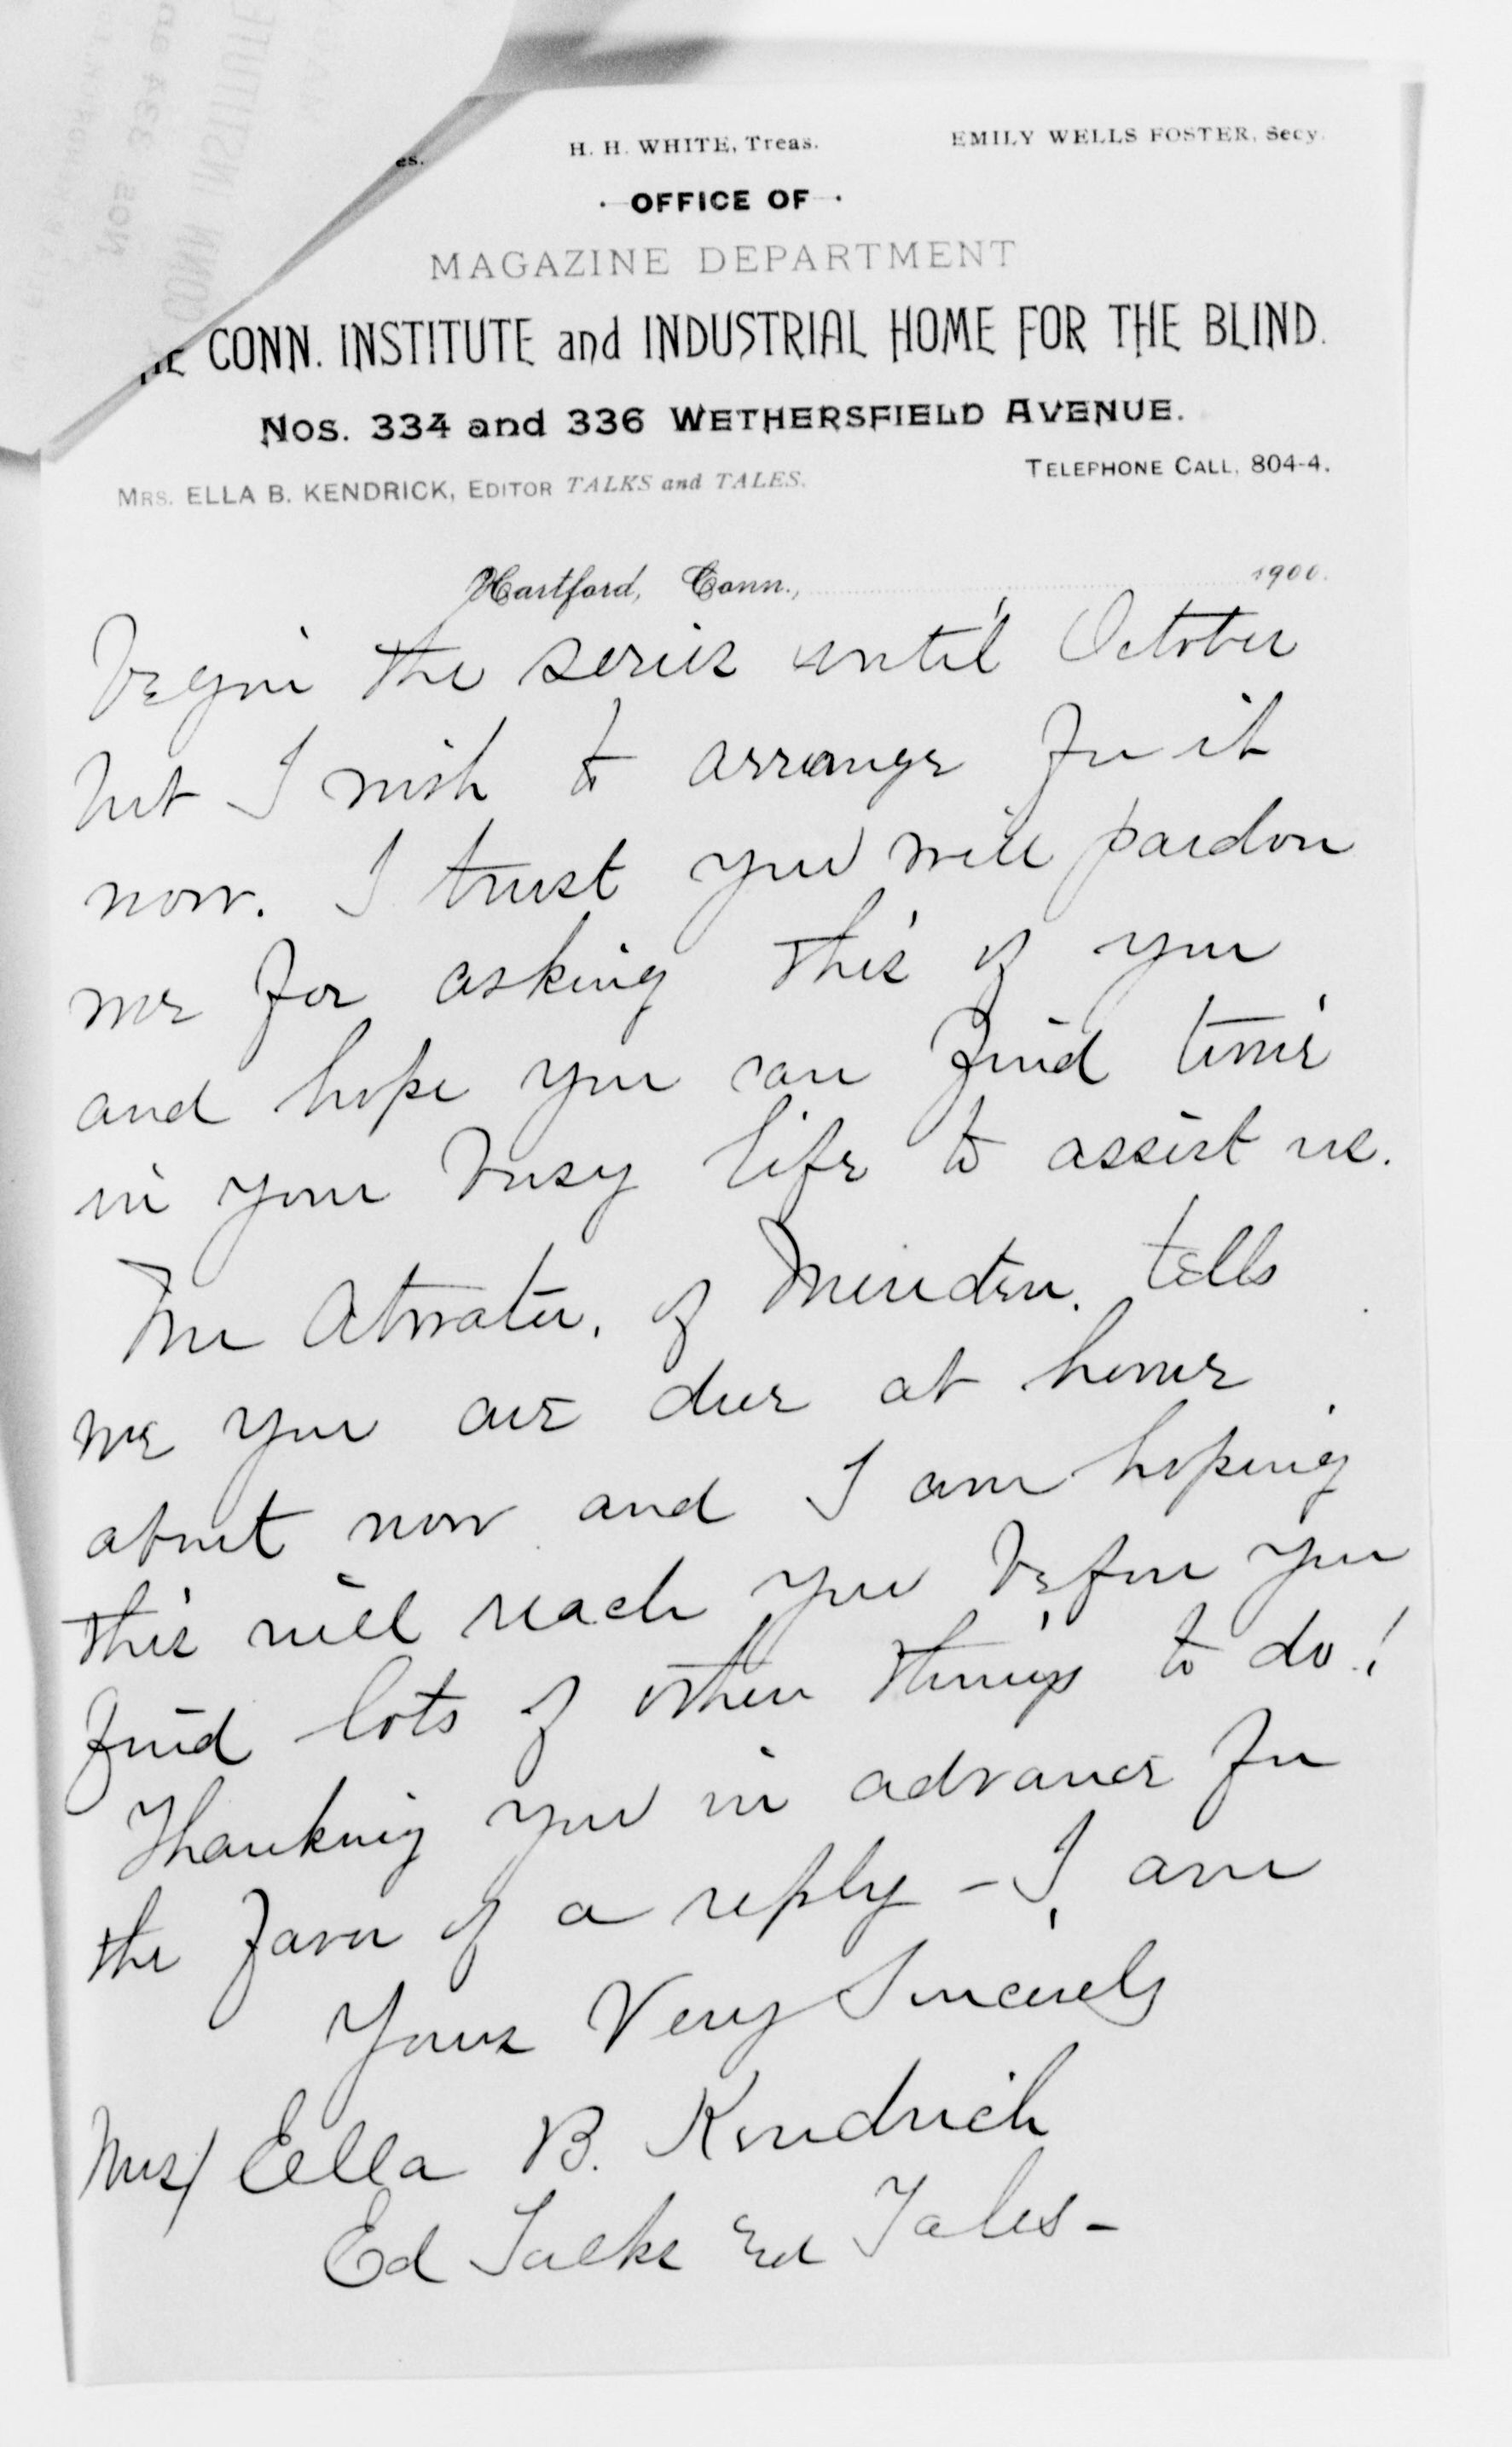 es. H. H. WHITE, Treas. EMILY WELLS FOSTER, Secy.
· OFFICE OF ·
MAGAZINE DEPARTMENT
HE CONN. INSTITUTE and INDUSTRIAL HOME FOR THE BLIND.
Nos. 334 and 336 WETHERSFIELD AVENUE.
TELEPHONE CALL, 804-4.
MRS. ELLA B. KENDRICK, EDITOR TALKS and TALES.
Hartford, Conn., 1900.
begin the series until October
but I wish to arrange for it
now. I trust you will pardon
me for asking this of you
and hope you can find time
in your busy life to assist us.
Mr Atwater, of Meriden, tells
me you are due at home
about now and I am hoping
this will reach you before you
find lots of other things to do!
Thanking you in advance for
the favor of a reply – I am
Yours Very Sincerely
Mrs/ Ella B. Kendrick
Ed Talks and Tales –